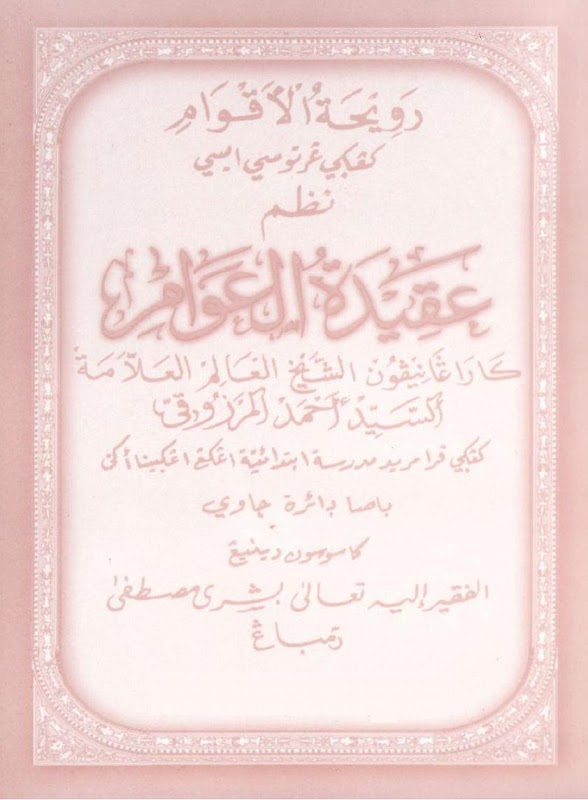 رَوِيْحَةُ الْأَقْوَامِ
كڠكي مرتوسي ايسي
نظم
عَقِيْدَةُ الْعَوَامْ
كَارَاڠَانِيڤُونْ الشَّيْخْ الْعَالِمْ الْعَلَّامَةْ
اَلسَّيِّدْ أَحْمَدْ الْمَرْزُوْقِيْ
كڠكي فرا مريد مدرسة ابتدائية اڠكڠ اڠكيناأكن
باصا دائرة جاوي
كاسوسون دينيڠ
الفقير إليه تعالى بشرى مصطفى
رمباڠ